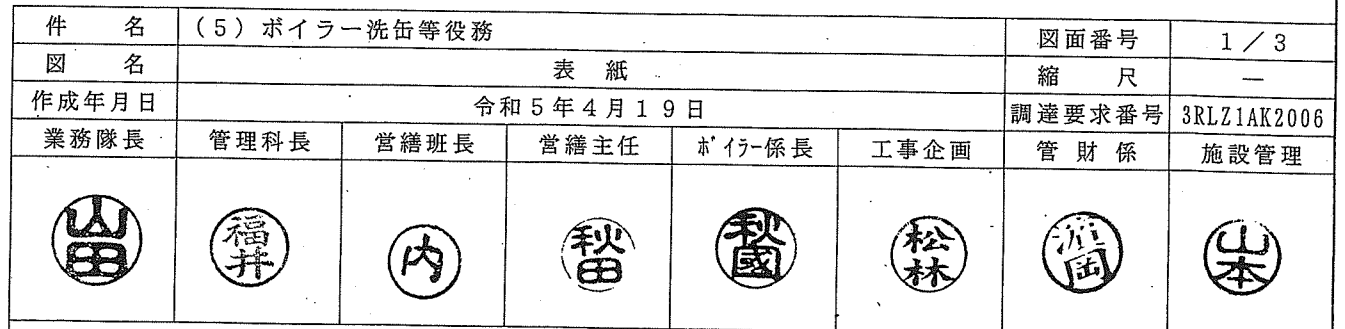 件名 (5)ボイラー洗缶等役務 図面番号 1/3
図名 表紙 縮尺 —
作成年月日 令和5年4月19日 調達要求番号 3RLZ1AK2006
業務隊長 管理科長 営繕班長 営繕主任 ボイラー係長 工事企画 管財係 施設管理
山田 福井 内 秋田 秋國 松林 岡 山本